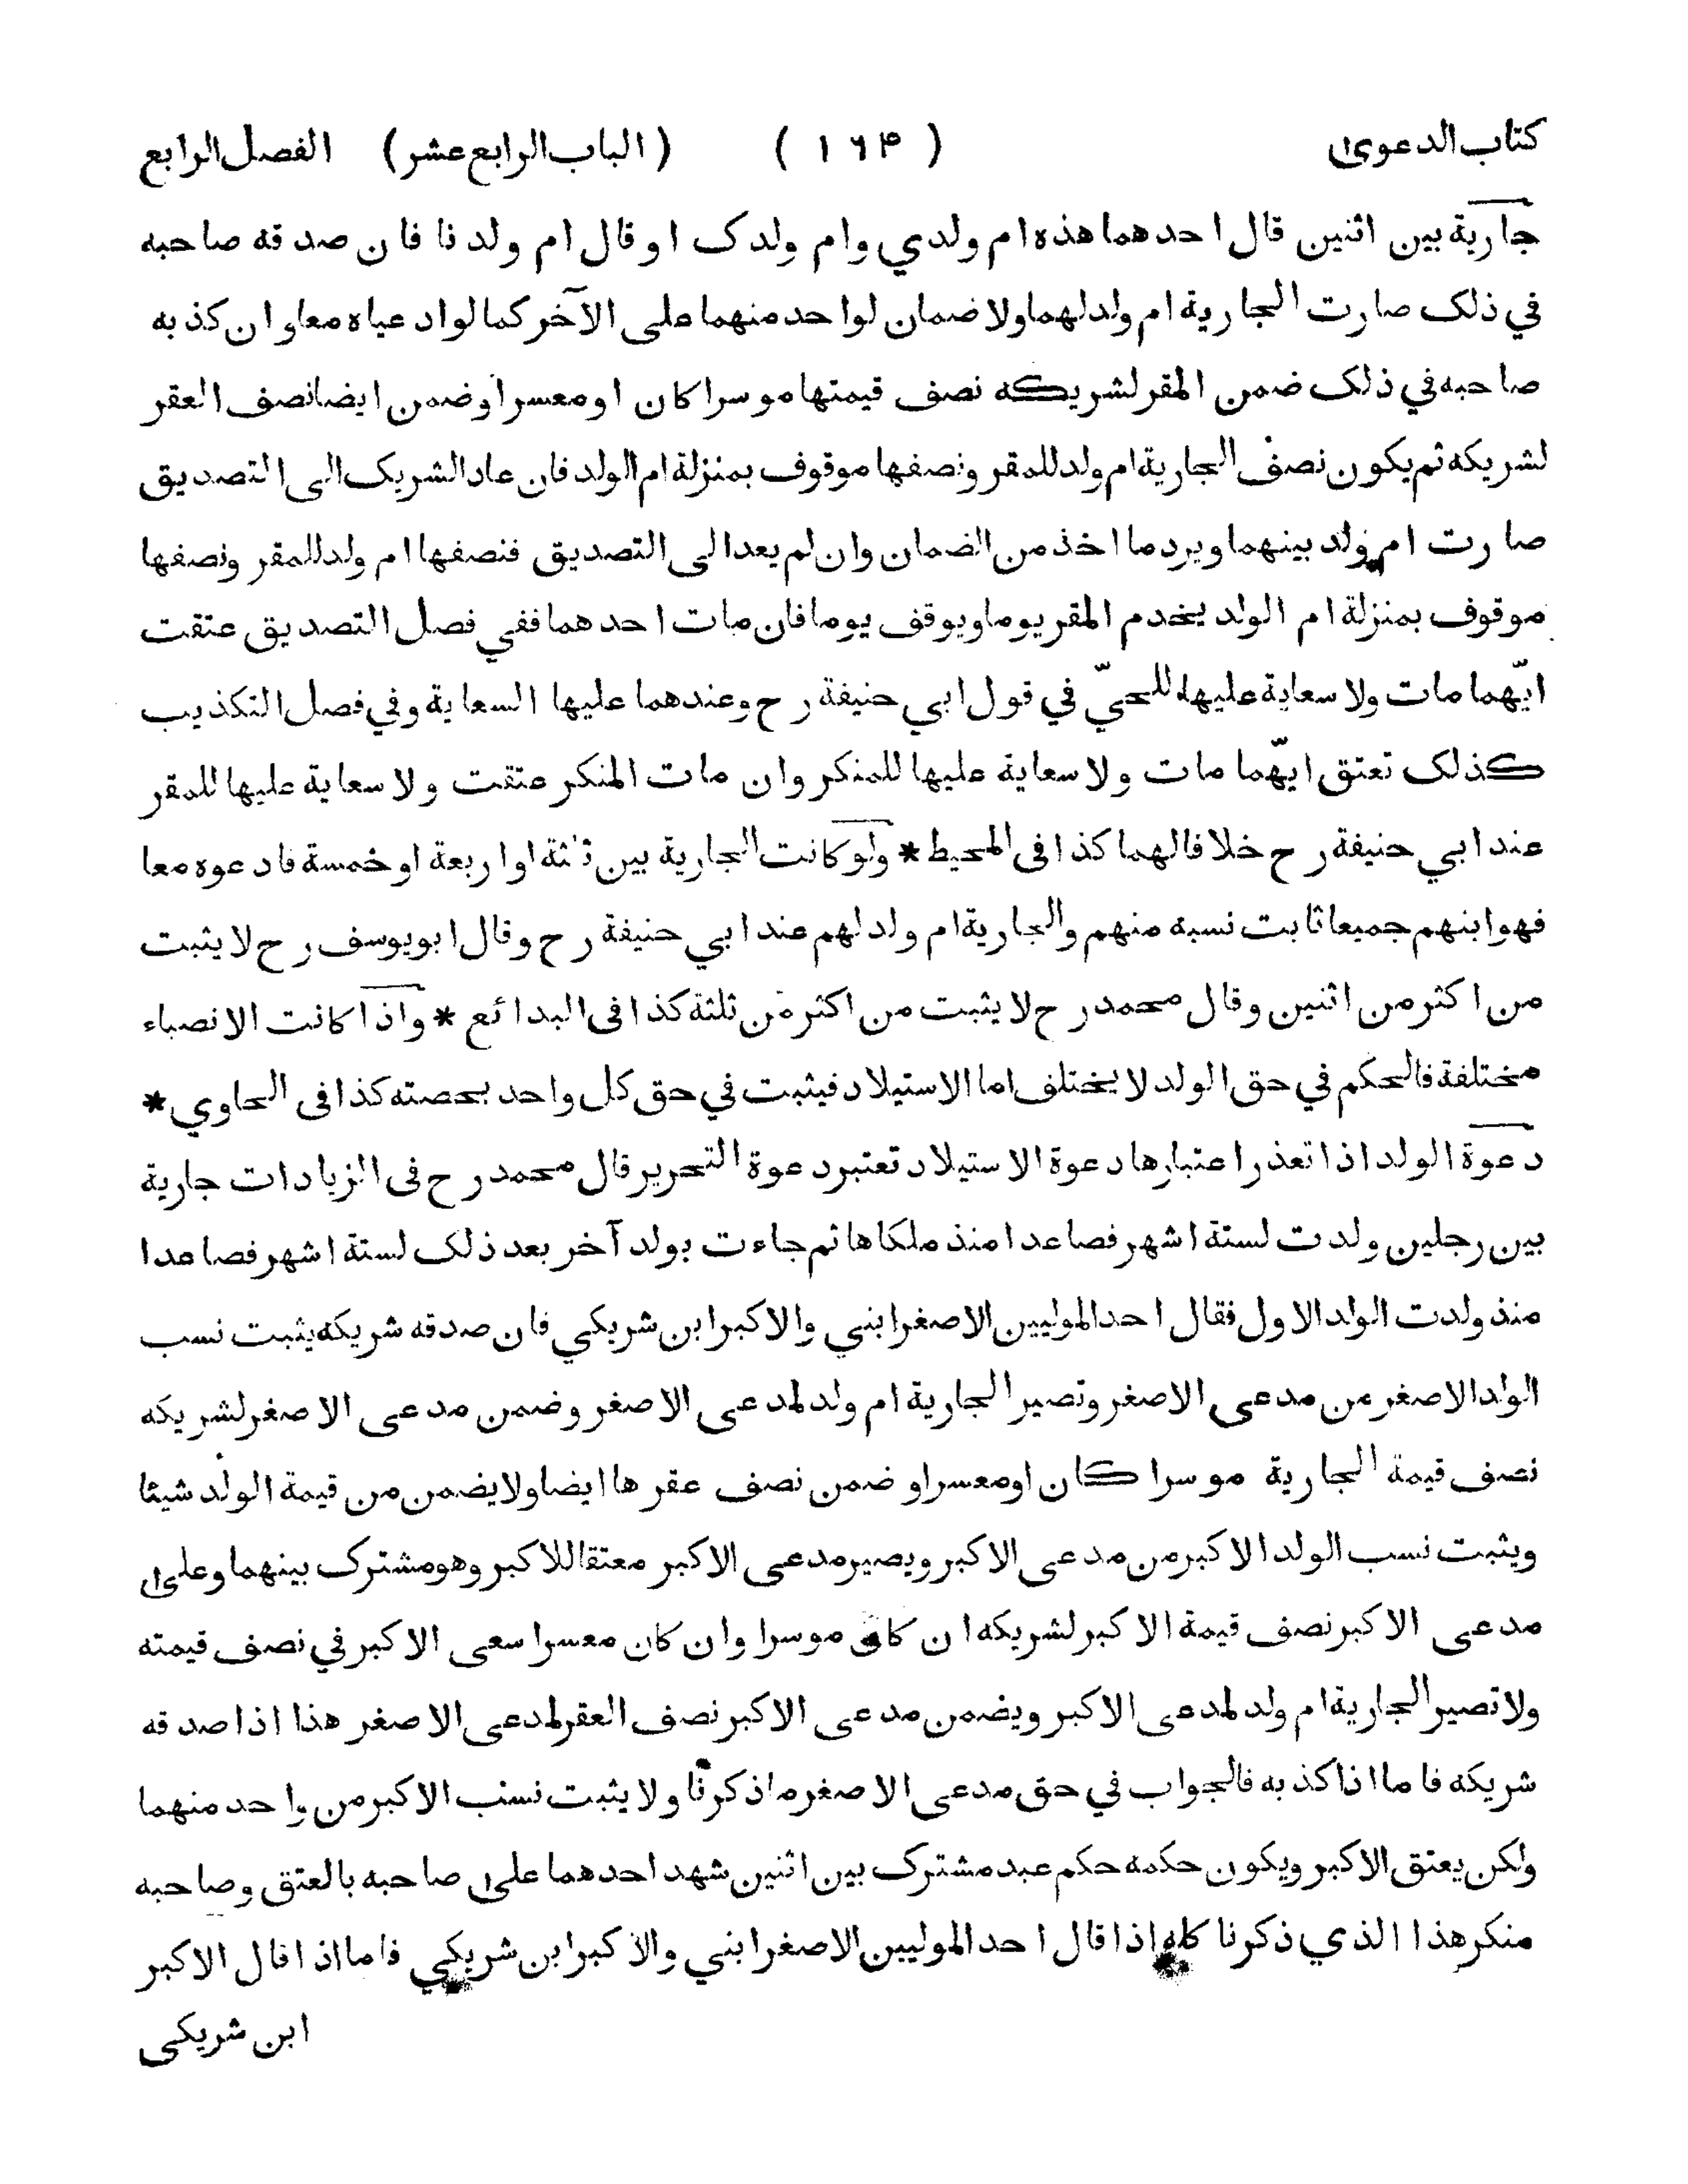 كتاب الدعوىٰ ( ١٦۴ ) ( الباب الرابع عشر ) الفصل الرابع
جارية بين اثنين قال احدهما هذه ام ولدي وام ولدك او قال ام ولدنا فان صدقه صاحبه
في ذلك صارت الجارية ام ولد لهما ولا ضمان لواحد منهما على الآخر كما لو ادعياه معا وان كذبه
صاحبه في ذلك ضمن المقر لشريكه نصف قيمتها موسرا كان او معسرا وضمن ايضا نصف العقر
لشريكه ثم يكون نصف الجارية ام ولد للمقر ونصفها موقوف بمنزلة ام الولد فان عاد الشريك الى التصديق
صارت ام ولد بينهما ويرد ما اخذ من الضمان وان لم يعد الى التصديق فنصفها ام ولد للمقر ونصفها
موقوف بمنزلة ام الولد يخدم المقر يوما ويوقف يوما فان مات احدهما ففي فصل التصديق عتقت
ايّهما مات ولا سعاية عليها للحيّ في قول ابي حنيفة رح وعندهما عليها السعاية وفي فصل التكذيب
كذلك تعتق ايّهما مات ولا سعاية عليها للمنكر وان مات المنكر عتقت ولا سعاية عليها للمقر
عند ابي حنيفة رح خلافا لهما كذا فى المحيط * ولو كانت الجارية بين ثلثة او اربعة او خمسة فادعوه معا
فهو ابنهم جميعا ثابت نسبه منهم والجارية ام ولد لهم عند ابي حنيفة رح وقال ابو يوسف رح لا يثبت
من اكثر من اثنين وقال محمد رح لا يثبت من اكثر من ثلثة كذا فى البدائع * واذا كانت الانصباء
مختلفة فالحكم في حق الولد لا يختلف اما الاستيلاد فيثبت في حق كل واحد بحصته كذا فى الحاوي *
دعوة الولد اذا تعذر اعتبارها دعوة الاستيلاد تعتبر دعوة التحرير قال محمد رح فى الزيادات جارية
بين رجلين ولدت لستة اشهر فصاعدا منذ ملكاها ثم جاءت بولد آخر بعد ذلك لستة اشهر فصاعدا
منذ ولدت الولد الاول فقال احد الموليين الاصغر ابني والاكبر ابن شريكي فان صدقه شريكه يثبت نسب
الولد الاصغر من مدعى الاصغر وتصير الجارية ام ولد لمدعى الاصغر وضمن مدعى الاصغر لشريكه
نصف قيمة الجارية موسرا كان او معسرا و ضمن نصف عقرها ايضا ولا يضمن من قيمة الولد شيئا
ويثبت نسب الولد الاكبر من مدعى الاكبر ويصير مدعى الاكبر معتقا للاكبر وهو مشترك بينهما وعلىٰ
مدعى الاكبر نصف قيمة الاكبر لشريكه ان كان موسرا وان كان معسرا سعى الاكبر في نصف قيمته
ولا تصير الجارية ام ولد لمدعى الاكبر ويضمن مدعى الاكبر نصف العقر لمدعى الاصغر هذا اذا صدقه
شريكه فاما اذا كذبه فالجواب في حق مدعى الاصغر ما ذكرنا ولا يثبت نسب الاكبر من واحد منهما
ولكن يعتق الاكبر ويكون حكمه حكم عبد مشترك بين اثنين شهد احدهما علىٰ صاحبه بالعتق وصاحبه
منكر هذا الذي ذكرنا كله اذا قال احد الموليين الاصغر ابني والاكبر ابن شريكي فاما اذا قال الاكبر
ابن شريكى